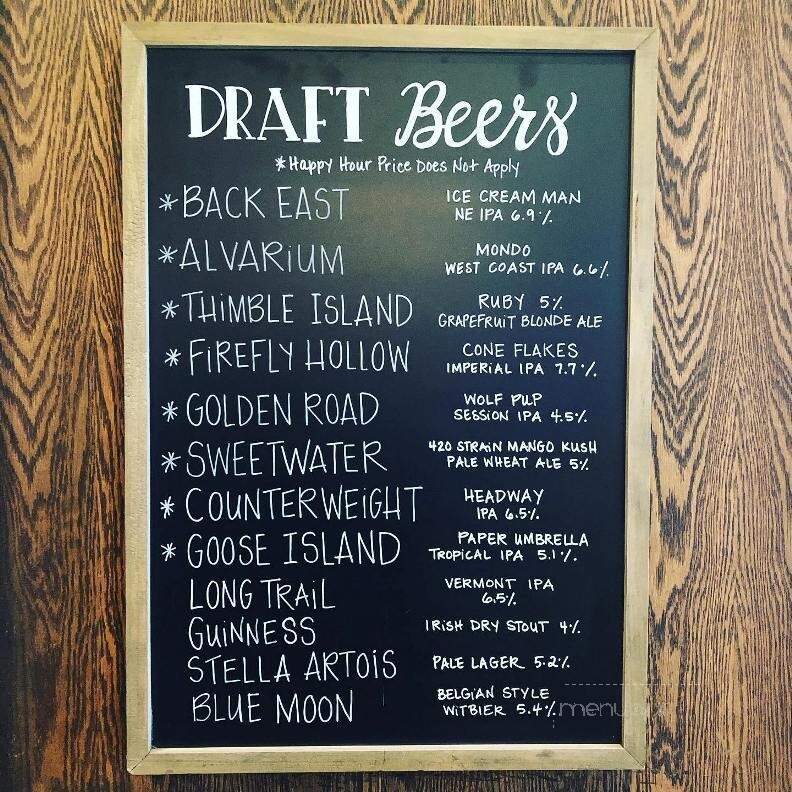 DRAFT Beers
*Happy Hour Price Does Not Apply
*BACK EAST
ICE CREAM MAN
NE IPA 6.9%
*ALVARiUM
MONDO
WEST COAST IPA 6.6%
*THiMBLE ISLAND
RUBY 5%
GRAPEFRUiT BLONDE ALE
*FiREFLY HOLLOW
CONE FLAKES
IMPERIAL IPA 7.7%
*GOLDEN ROAD
WOLF PUP
SESSION IPA 4.5%
*SWEETWATER
420 STRAiN MANGO KUSH
PALE WHEAT ALE 5%
*COUNTERWEiGHT
HEADWAY
IPA 6.5%
*GOOSE ISLAND
PAPER UMBRELLA
TROPICAL IPA 5.1%
LONG TRAiL
VERMONT IPA
6.5%
GUiNNESS
IRiSH DRY STOUT 4%
STELLA ARTOiS
PALE LAGER 5.2%
BLUE MOON
BELGiAN STYLE
WiTBIER 5.4%